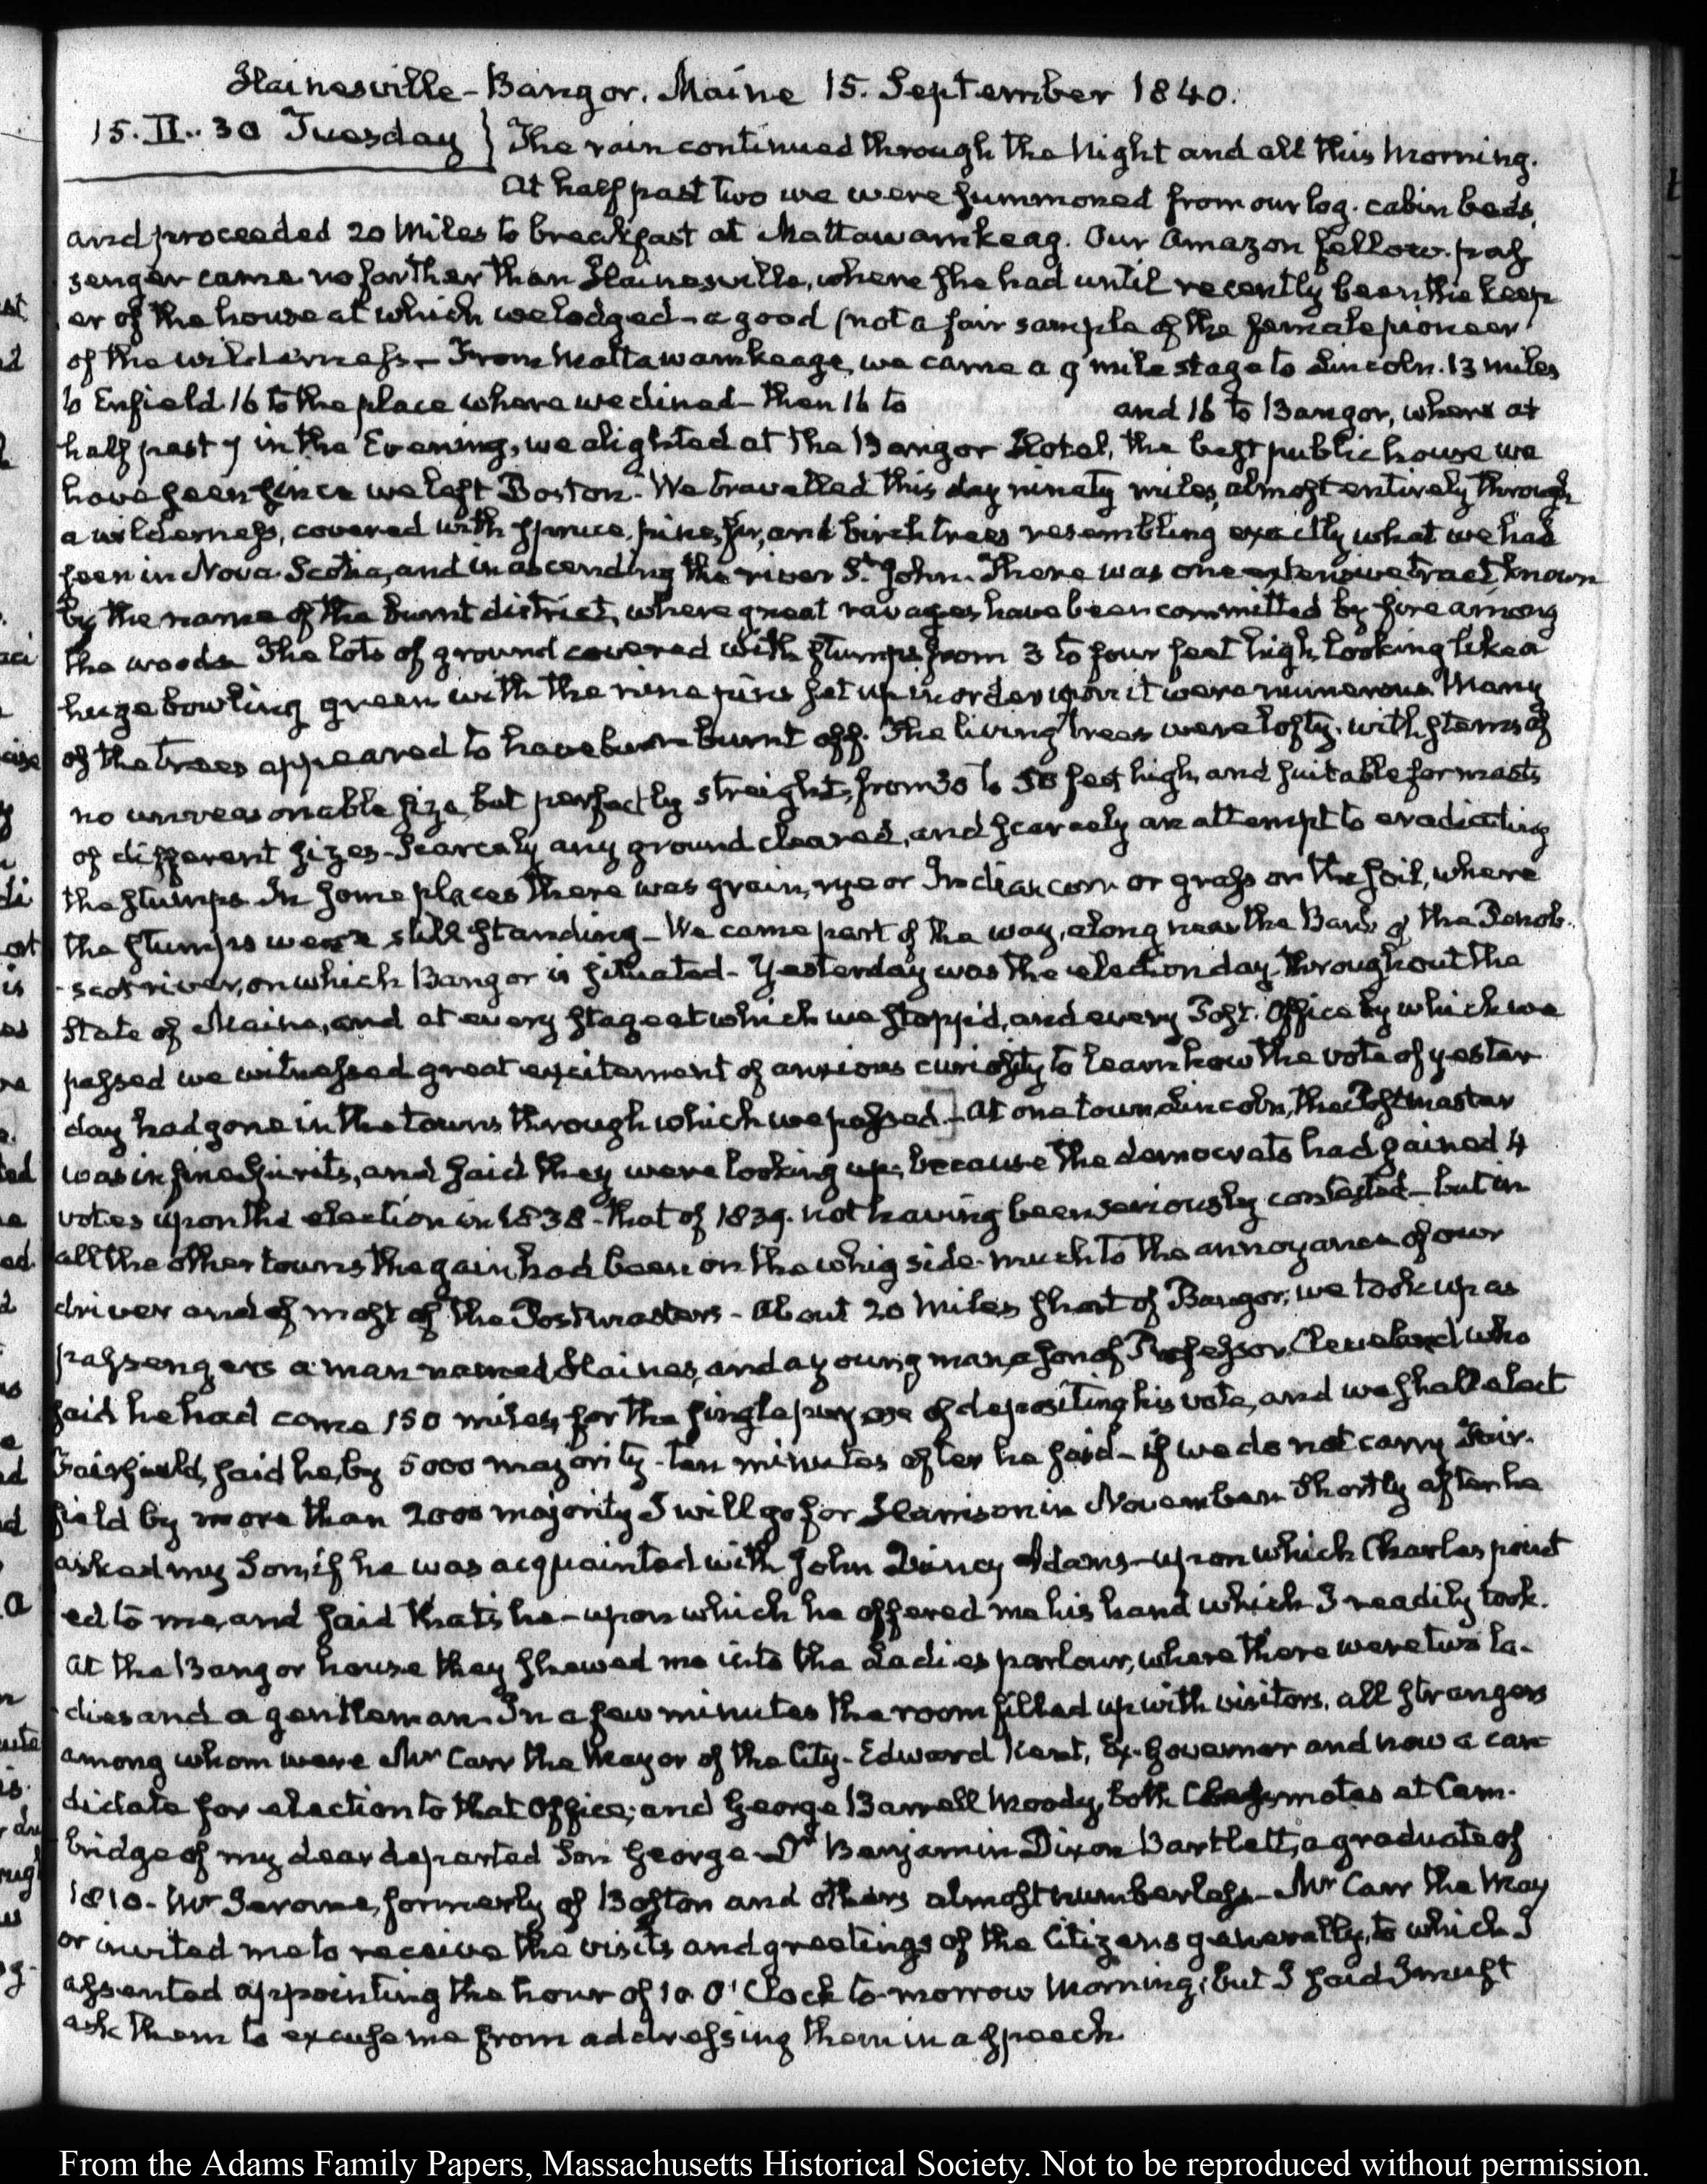 Hainesville – Bangor. Maine 15. September 1840.
15. II.. 30 Tuesday } The rain continued through the Night and all this Morning.
At half past two we were summoned from our log-cabin beds,
and proceeded 20 Miles to breakfast at Mattawamkeag. Our Amazon fellow-pas
senger came no farther than Hainesville, where she had until recently been the keep
er of the house at which we lodged – a good (not a fair sample of the female pioneer
of the wilderness – From Mattawamkeage, we came a 9 mile stage to Lincoln. 13 miles
to Enfield 16 to the place where we dined – then 16 to and 16 to Bangor, where at
half past 7 in the Evening, we alighted at the Bangor Hotel, the best public house we
have seen since we left Boston. We travelled this day ninety miles, almost entirely through
a wilderness, covered with spruce, pine, fir, and birch trees resembling exactly what we had
seen in Nova Scotia, and in ascending the river St. John. There was one extensive tract known
by the name of the burnt district, where great ravages have been committed by fire among
the woods. The lots of ground covered with stumps from 3 to four feet high, looking like a
huge bowling green with the nine pins set up in order upon it were numerous. Many
of the trees appeared to have been burnt off. The living trees were lofty, with stems of
no unreasonable size, but perfectly streight, from 30 to 50 feet high, and suitable for masts
of different sizes – Scarcely any ground cleared, and scarcely an attempt to eradicating
the stumps. In some places there was grain, rye or Indian corn or grass on the soil, where
the stumps were still standing – We came part of the way, along near the Bank of the Penob-
-scot river, on which Bangor is situated – Yesterday was the election day throughout the
State of Maine, and at every stage at which we stopp'd, and every Post-Office by which we
passed we witnessed great excitement of anxious curiosity to learn how the vote of yester
day had gone in the towns through which we passed. – At one town, Lincoln, the Postmaster
was in fine spirits, and said they were looking up, because the democrats had gained 4
votes upon the election in 1838 – that of 1839. not having been seriously contested – but in
all the other towns the gain had been on the whig side – much to the annoyance of our
driver and of most of the Postmasters – About 20 Miles short of Bangor, we took up as
passengers a man named Haines, and a young man, a son of Professor Cleveland who
said he had come 150 miles, for the single purpose of depositing his vote, and we shall elect
Fairfield, said he, by 5000 majority – ten minutes after he said – if we do not carry Fair-
field by more than 2000 majority I will go for Harrison in November. Shortly after he
asked my Son, if he was acquainted with John Quincy Adams – upon which Charles point
ed to me, and said that's he – upon which he offered me his hand which I readily took.
At the Bangor house they shewed me into the Ladies parlour, where there were two la-
-dies and a gentleman. In a few minutes the room filled up with visitors, all strangers
among whom were Mr Carr the Mayor of the City – Edward Kent, Ex-Governor and now a can-
didate for election to that Office; and George Barrell Moody, both Classmates at Cam-
bridge of my dear departed Son George – Dr Benjamin Dixon Bartlett, a graduate of
1810 – Mr Jerome, formerly of Boston and others almost numberless – Mr Carr the May
or invited me to receive the visits and greetings of the Citizens generally, to which I
assented appointing the hour of 10 O'Clock to-morrow Morning; but I said I must
ask them to excuse me from addressing them in a speech
From the Adams Family Papers, Massachusetts Historical Society. Not to be reproduced without permission.